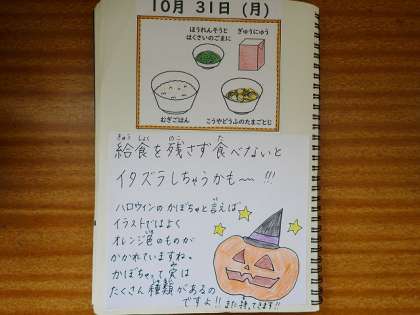 10月 31日 (月)
ほうれんそうと
はくさいのごまに
ぎゅうにゅう
むぎごはん
こうやどうふのたまごとじ
きゅう しょく のこ た
給食を残さず食べないと
イタズラしちゃうかも〜!!!
ハロウィンのかぼちゃと言えば
イラストではよく
オレンジ色のものが
かかれていますね。
かぼちゃって実は
たくさん種類があるの
ですよ!!また持ってきます!!